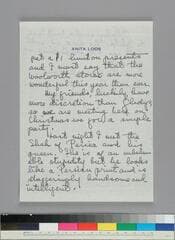 ANITA LOOS
put a $1 limit on presents
and I must say that the
woolworth stores are more
wonderful this year than ever.
My friends, luckily have
more discretion than Gladys
so we are meeting here on
Christmas eve for a simple
party.
Last night I met the
Shah of Persia and his
queen. She is of an
stupidity but he looks
like a Persian print and is
staggeringly handsome and
intelligent.